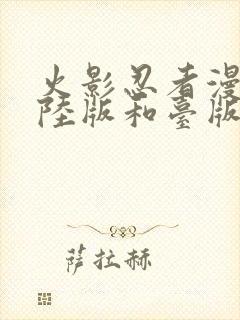 火影忍者漫
陸版和臺版
萨拉赫